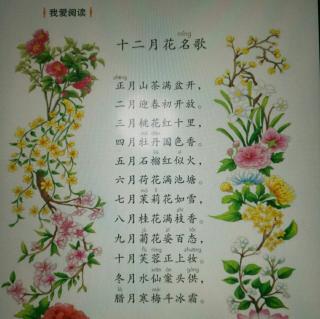 我爱阅读
míng
十二月花名歌
zhēng
正月山茶满盆开，
二月迎春初开放。
三月桃花红十里，
mǔ dān
四月牡丹国色香。
liú sì
五月石榴红似火，
六月荷花满池塘。
mò lì
七月茉莉花如雪，
八月桂花满枝香。
jú zī
九月菊花姿百态，
fú róng zhuāng
十月芙蓉正上妆。
xiān àn gòng
冬月水仙案头供，
là
腊月寒梅斗冰霜。